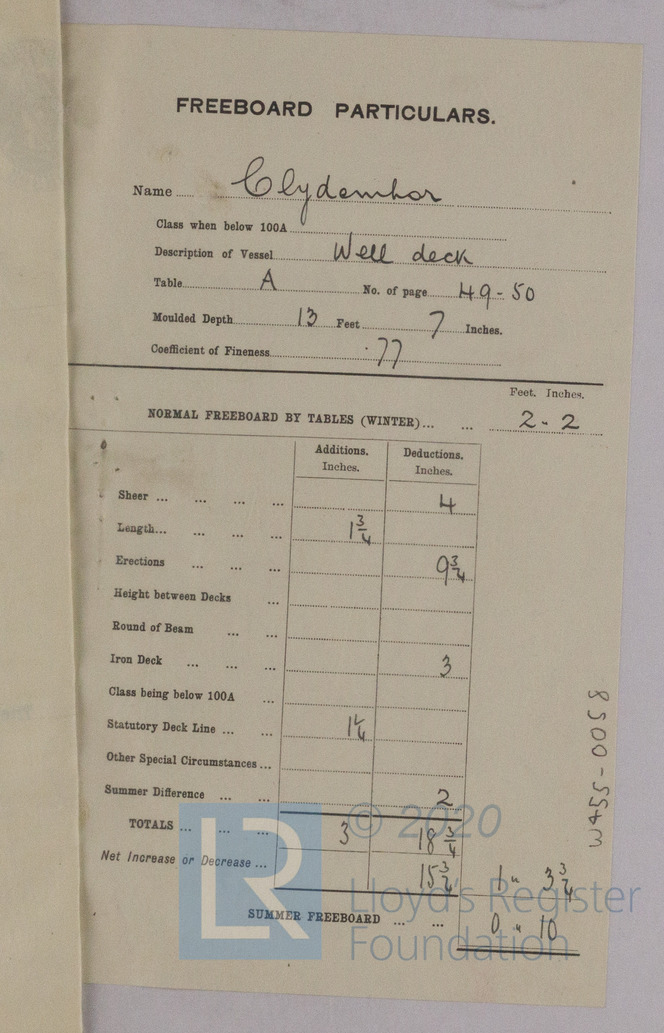 FREEBOARD PARTICULARS.
Name Clydemhor
Class when below 100A
Description of Vessel Well deck
Table A No. of page 49-50
Moulded Depth 13 Feet 7 Inches.
Coefficient of Fineness .77
Feet. Inches.
NORMAL FREEBOARD BY TABLES (WINTER)... ... 2 - 2
Additions. Inches. Deductions. Inches.
Sheer ... ... ... ... 4
Length... ... ... ... 1 3/4
Erections ... ... ... 9 3/4
Height between Decks ...
Round of Beam ... ...
Iron Deck ... ... ... 3
Class being below 100A ...
Statutory Deck Line ... ... 1 1/4
Other Special Circumstances ...
Summer Difference ... ... 2
TOTALS ... ... ... 3 18 3/4
Net Increase or Decrease ... 15 3/4 1 " 3 3/4
SUMMER FREEBOARD ... ... 0 " 10
W455-0058
© 2020
LR
Lloyd's Register
Foundation